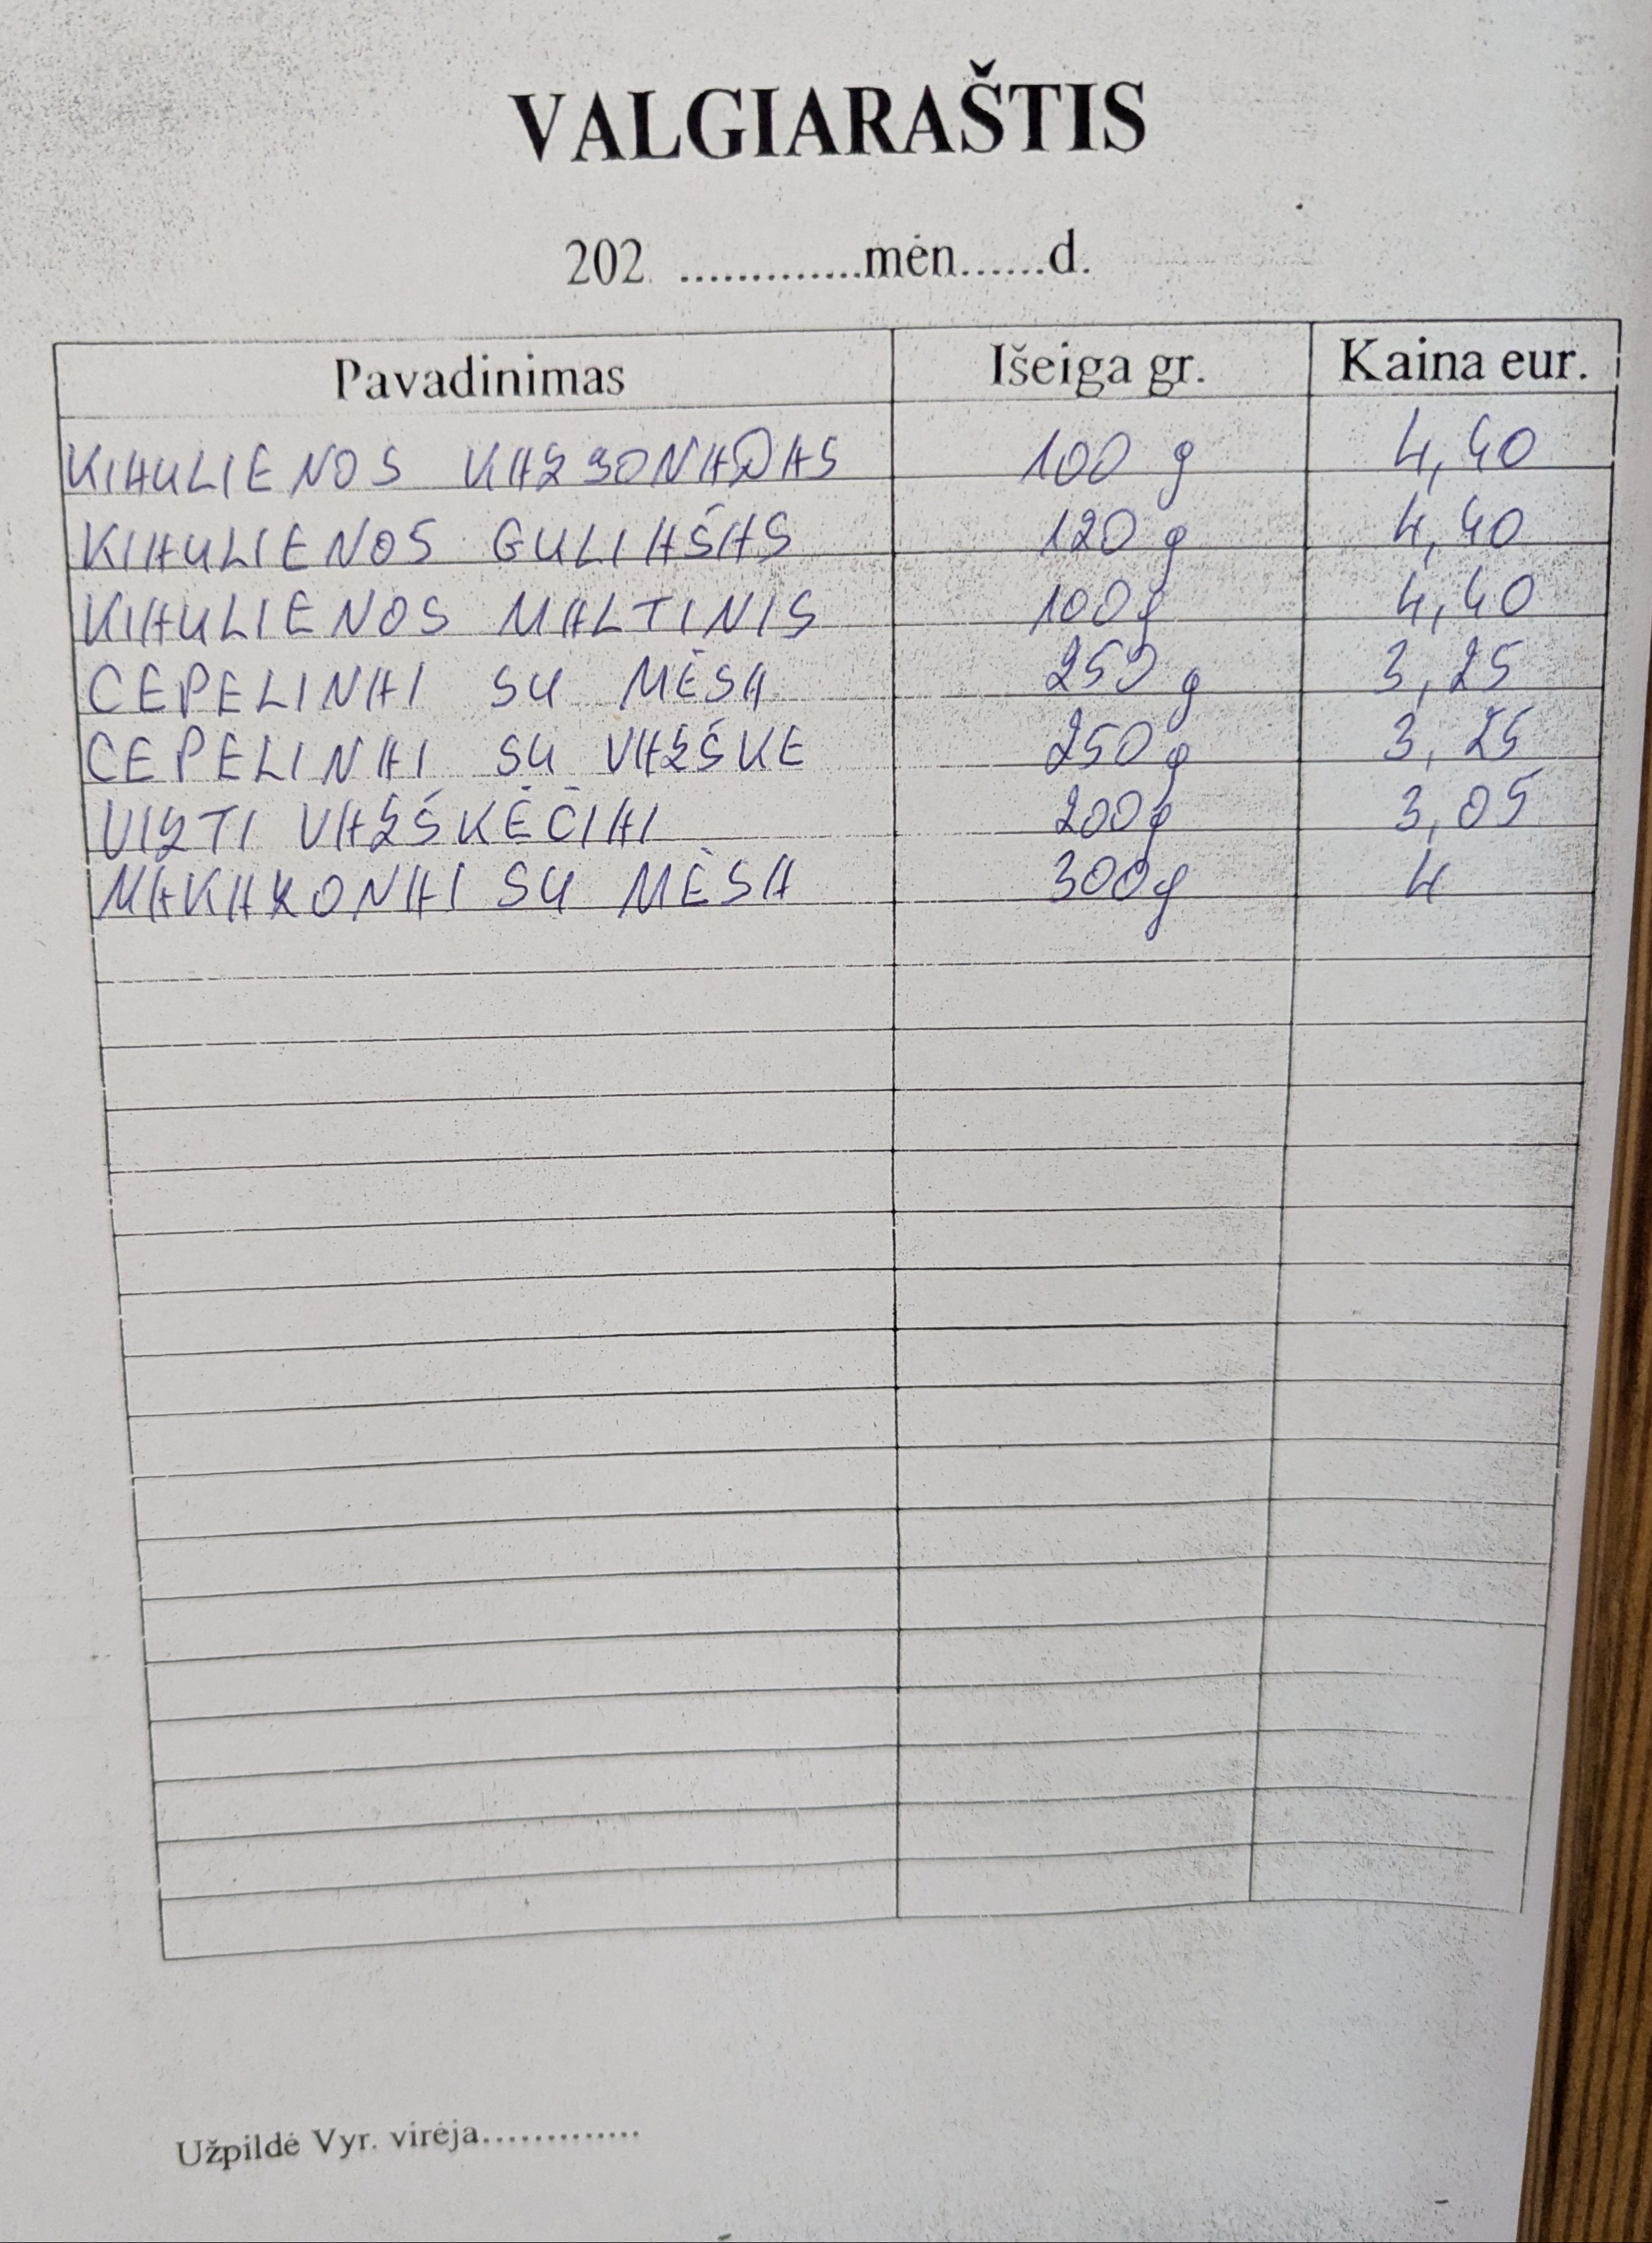 VALGIARAŠTIS
202 .............mėn......d.
Pavadinimas Išeiga gr. Kaina eur.
KIAULIENOS KARBONADAS 100 g 4,40
KIAULIENOS GULIAŠAS 120 g 4,40
KIAULIENOS MALTINIS 100g 4,40
CEPELINAI SU MĖSA 250 g 3,25
CEPELINAI SU VARŠKE 250g 3,25
VIRTI VARŠKĖČIAI 200g 3,05
MAKARONAI SU MĖSA 300g 4
Užpildė Vyr. virėja.............